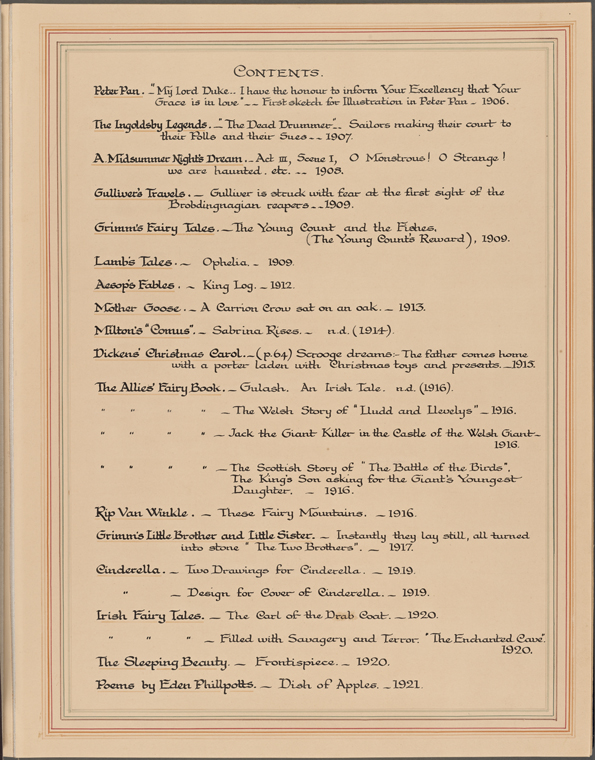 CONTENTS.
Peter Pan. – "My Lord Duke... I have the honour to inform Your Excellency that Your
Grace is in love" – – First sketch for Illustration in Peter Pan – 1906.
The Ingoldsby Legends. – "The Dead Drummer" – Sailors making their court to
their Polls and their Sues – – 1907.
A Midsummer Night's Dream. – Act III, Scene I, O Monstrous! O Strange!
we are haunted. etc. – – 1908.
Gulliver's Travels. – Gulliver is struck with fear at the first sight of the
Brobdingnagian reapers – – 1909.
Grimm's Fairy Tales. – The Young Count and the Fishes.
(The Young Count's Reward), 1909.
Lamb's Tales. – Ophelia. – 1909.
Aesop's Fables. – King Log. – 1912.
Mother Goose. – A Carrion Crow sat on an oak. – 1913.
Milton's "Comus". – Sabrina Rises. – n.d. (1914).
Dickens' Christmas Carol. – (p.64) Scrooge dreams:- The father comes home
with a porter laden with Christmas toys and presents. – 1915.
The Allies' Fairy Book. – Gulash. An Irish Tale. n.d. (1916).
" " " " – The Welsh Story of "Lludd and Llevelys" – 1916.
" " " " – Jack the Giant Killer in the Castle of the Welsh Giant –
1916.
" " " " – The Scottish Story of "The Battle of the Birds".
The King's Son asking for the Giant's Youngest
Daughter. – 1916.
Rip Van Winkle. – These Fairy Mountains. – 1916.
Grimm's Little Brother and Little Sister. – Instantly they lay still, all turned
into stone "The Two Brothers". – 1917.
Cinderella. – Two Drawings for Cinderella. – 1919.
" – Design for Cover of Cinderella. – 1919.
Irish Fairy Tales. – The Carl of the Drab Coat. – 1920.
" " " – Filled with Savagery and Terror. "The Enchanted Cave".
1920.
The Sleeping Beauty. – Frontispiece. – 1920.
Poems by Eden Phillpotts. – Dish of Apples. – 1921.